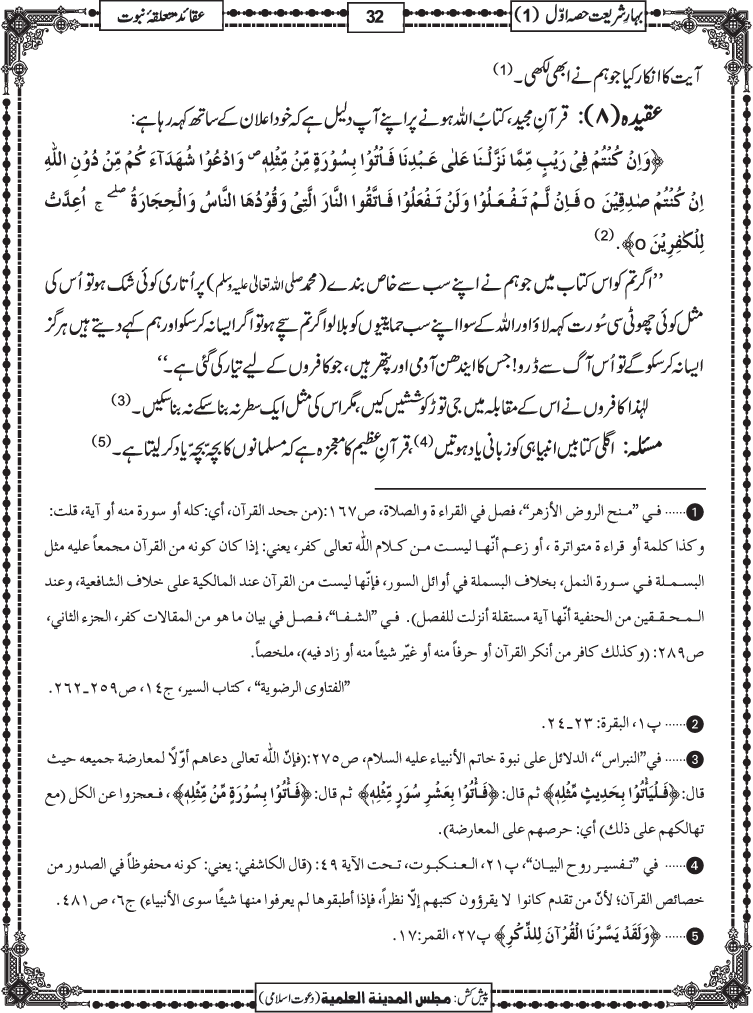 بہارِ شریعت حصہ اوّل (1)
32
عقائد متعلقۂ نبوت
آیت کا انکار کیا جو ہم نے ابھی لکھی۔ (1)
عقیدہ (۸): قرآنِ مجید، کتابُ اللہ ہونے پر اپنے آپ دلیل ہے کہ خود اعلان کے ساتھ کہہ رہا ہے:
﴿وَاِنْ كُنْتُمْ فِیْ رَیْبٍ مِّمَّا نَزَّلْنَا عَلٰی عَبْدِنَا فَاْتُوْا بِسُوْرَةٍ مِّنْ مِّثْلِهٖ ص وَادْعُوْا شُهَدَآءَ كُمْ مِّنْ دُوْنِ اللّٰهِ
اِنْ كُنْتُمْ صٰدِقِیْنَ o فَاِنْ لَّمْ تَفْعَلُوْا وَلَنْ تَفْعَلُوْا فَاتَّقُوا النَّارَ الَّتِیْ وَقُوْدُهَا النَّاسُ وَالْحِجَارَةُ صلے ج اُعِدَّتْ
لِلْكٰفِرِیْنَ o﴾. (2)
’’اگر تم کو اس کتاب میں جو ہم نے اپنے سب سے خاص بندے (محمد صلی اللہ تعالیٰ علیہ وسلم) پر اُتاری کوئی شک ہو تو اُس کی
مثل کوئی چھوٹی سی سُورت کہہ لاؤ اور اللہ کے سوا اپنے سب حمایتیوں کو بلا لو اگر تم سچے ہو تو اگر ایسا نہ کر سکو اور ہم کہے دیتے ہیں ہرگز
ایسا نہ کر سکو گے تو اُس آگ سے ڈرو! جس کا ایندھن آدمی اور پتھر ہیں، جو کافروں کے لیے تیار کی گئی ہے۔‘‘
لہٰذا کافروں نے اس کے مقابلہ میں جی توڑ کوششیں کیں، مگر اس کی مثل ایک سطر نہ بنا سکے نہ بنا سکیں۔ (3)
مسئلہ: اگلی کتابیں انبیا ہی کو زبانی یاد ہوتیں (4)، قرآنِ عظیم کا معجزہ ہے کہ مسلمانوں کا بچّہ بچّہ یاد کر لیتا ہے۔ (5)
1 ...... فـي ”منح الروض الأزهر“، فصل في القراءة والصلاة، ص١٦٧: (من جحد القرآن، أي: كله أو سورة منه أو آية، قلت:
وكذا كلمة أو قراءة متواترة، أو زعم أنّها ليست من كلام اللّٰه تعالى كفر، يعني: إذا كان كونه من القرآن مجمعاً عليه مثل
البسملة في سورة النمل، بخلاف البسملة في أوائل السور، فإنّها ليست من القرآن عند المالكية على خلاف الشافعية، وعند
المحققين من الحنفية أنّها آية مستقلة أنزلت للفصل). في ”الشفا“، فصل في بيان ما هو من المقالات كفر، الجزء الثاني،
ص٢٨٩: (وكذلك كافر من أنكر القرآن أو حرفاً منه أو غيّر شيئاً منه أو زاد فيه)، ملخصاً.
”الفتاوى الرضوية“، كتاب السير، ج١٤، ص٢٥٩ـ٢٦٢.
2 ...... پ١، البقرة: ٢٣ـ٢٤.
3 ...... في”النبراس“، الدلائل على نبوة خاتم الأنبياء عليه السلام، ص٢٧٥: (فإنّ اللّٰه تعالى دعاهم أوّلاً لمعارضة جميعه حيث
قال: ﴿فَلْیَأْتُوْا بِحَدِیْثٍ مِّثْلِهٖ﴾ ثم قال: ﴿فَأْتُوْا بِعَشْرِ سُوَرٍ مِّثْلِهٖ﴾ ثم قال: ﴿فَأْتُوْا بِسُوْرَةٍ مِّنْ مِّثْلِهٖ﴾، فعجزوا عن الكل (مع
تهالكهم على ذلك) أي: حرصهم على المعارضة).
4 ...... في ”تفسير روح البيان“، پ٢١، العنكبوت، تحت الآية ٤٩: (قال الكاشفي: يعني: كونه محفوظاً في الصدور من
خصائص القرآن؛ لأنّ من تقدم كانوا لا يقرؤون كتبهم إلّا نظراً، فإذا أطبقوها لم يعرفوا منها شيئًا سوى الأنبياء) ج٦، ص٤٨١.
5 ...... ﴿وَلَقَدْ یَسَّرْنَا الْقُرْآنَ لِلذِّكْرِ﴾ پ٢٧، القمر: ١٧.
پیش کش: مجلس المدينة العلمية (دعوت اسلامی)